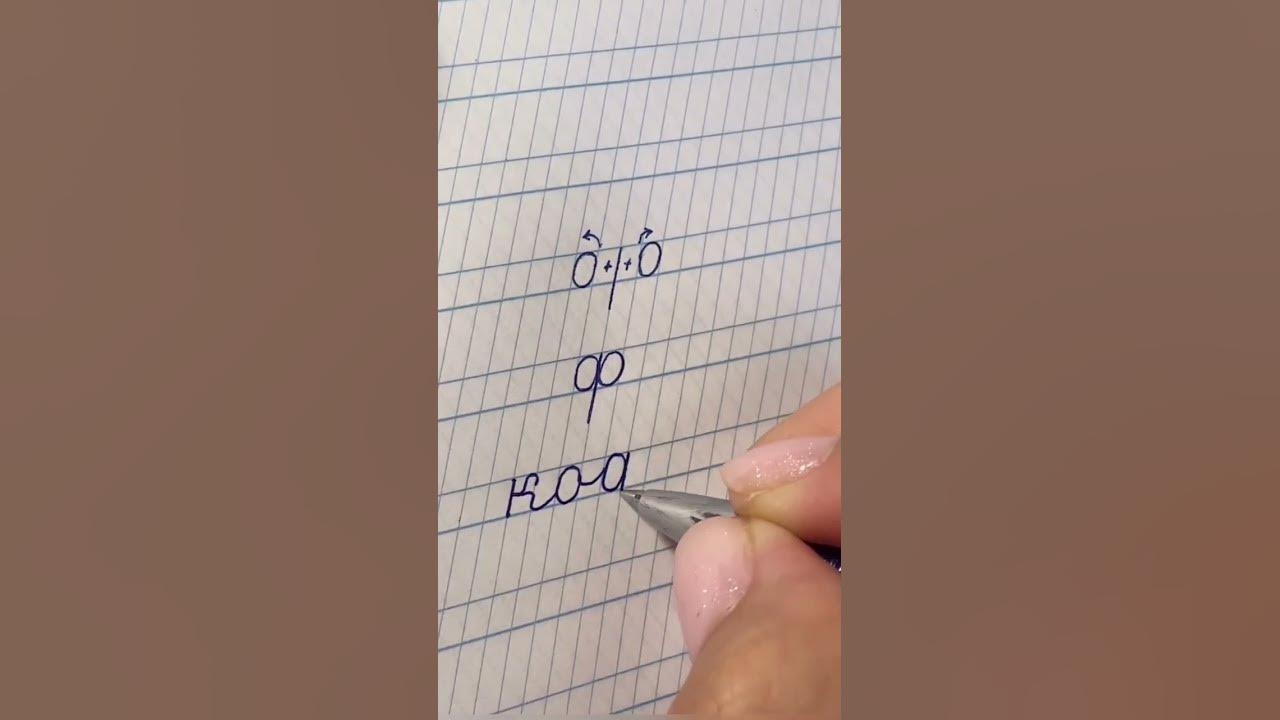 О+|+О
ф
коа